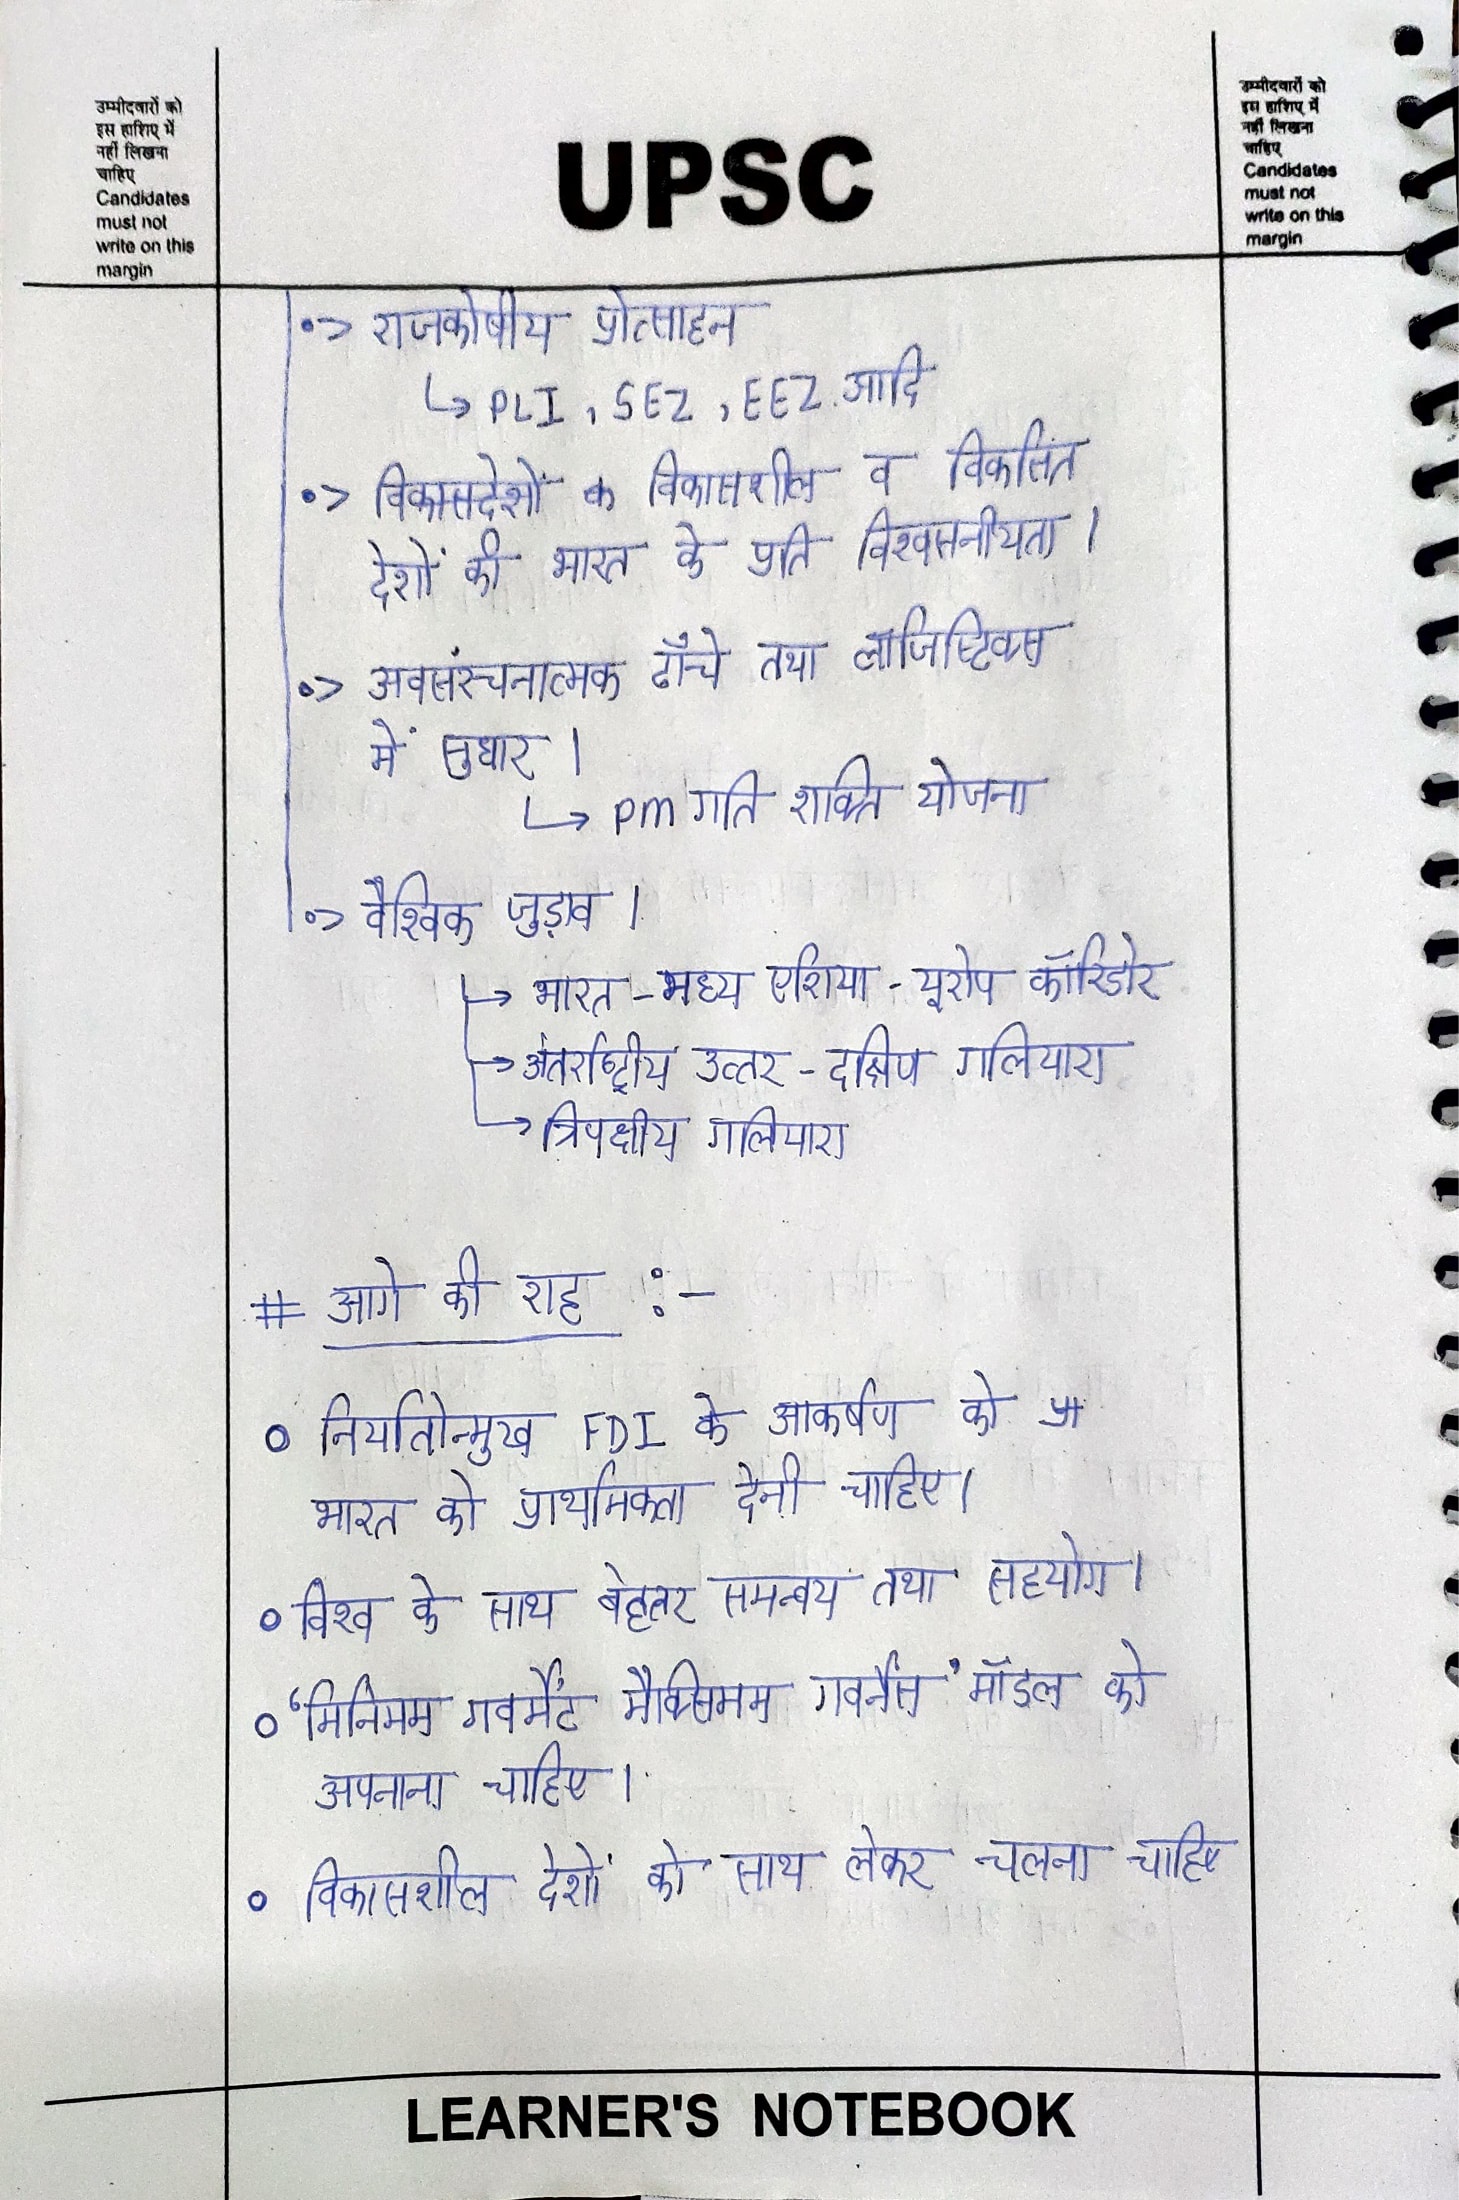 उम्मीदवारों को
इस हाशिए में
नहीं लिखना
चाहिए
Candidates
must not
write on this
margin
UPSC
उम्मीदवारों को
इस हाशिए में
नहीं लिखना
चाहिए
Candidates
must not
write on this
margin
•> राजकोषीय प्रोत्साहन
↳ PLI, SEZ, EEZ आदि
•> विकासदेशों क विकासशील व विकसित
देशों की भारत के प्रति विश्वसनीयता।
•> अवसंरचनात्मक ढाँचे तथा लॉजिस्टिक्स
में सुधार।
↳ PM गति शक्ति योजना
•> वैश्विक जुड़ाव।
→ भारत-मध्य एशिया-यूरोप कॉरिडोर
→ अंतर्राष्ट्रीय उत्तर-दक्षिण गलियारा
→ त्रिपक्षीय गलियारा
# आगे की राह :-
० निर्यातोन्मुख FDI के आकर्षण को प्रा
भारत को प्राथमिकता देनी चाहिए।
० विश्व के साथ बेहतर समन्वय तथा सहयोग।
० 'मिनिमम गवर्मेंट मैक्सिमम गवर्नेंस' मॉडल को
अपनाना चाहिए।
० विकासशील देशों को साथ लेकर चलना चाहिए
LEARNER'S NOTEBOOK